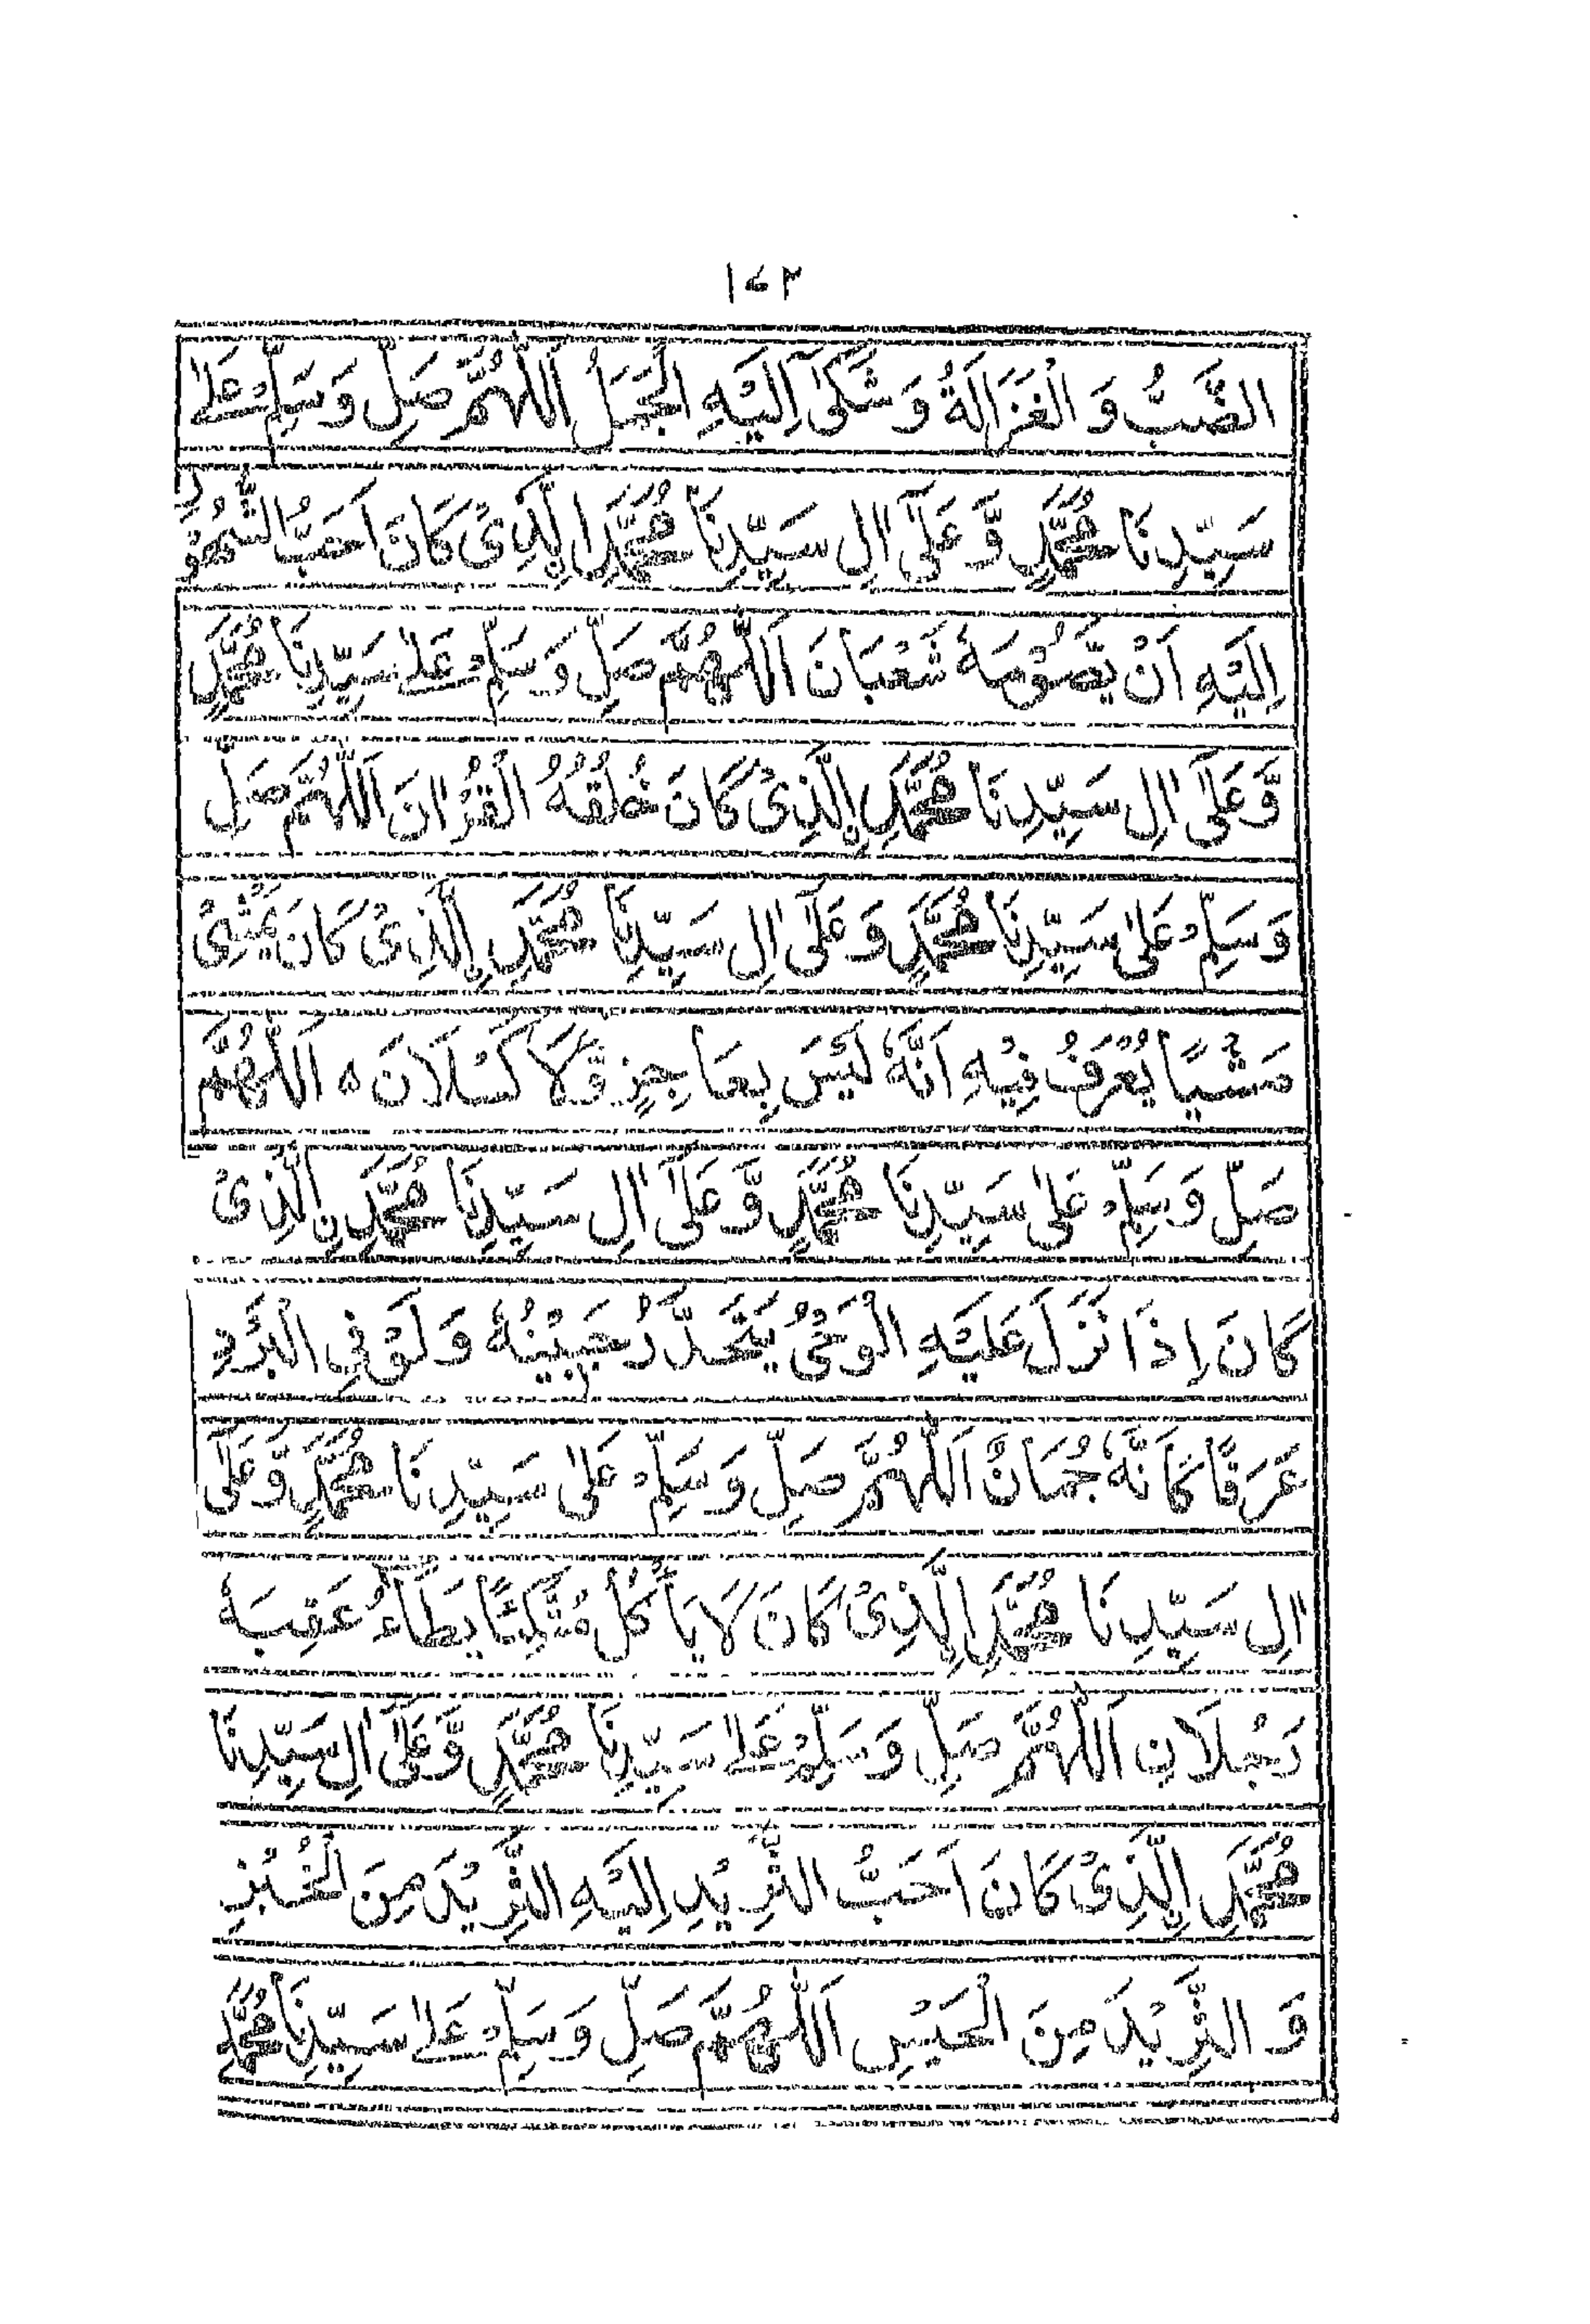 ۱۶۲
الضَّبُّ وَ الْغَزَالَةُ وَشَكٰى اِلَيْهِ الْجَمَلُ اَللّٰهُمَّ صَلِّ وَسَلِّمْ عَلٰى
سَيِّدِنَا مُحَمَّدٍ وَّ عَلٰٓى اٰلِ سَيِّدِنَا مُحَمَّدِ اِلَّذِىْ كَانَ اَحَبُّ الشُّهُوْرِ
اِلَيْهِ اَنْ يَّصُوْمَهٗ شَعْبَانَ اَللّٰهُمَّ صَلِّ وَسَلِّمْ عَلٰى سَيِّدِنَا مُحَمَّدٍ
وَّعَلٰٓى اٰلِ سَيِّدِنَا مُحَمَّدِ اِلَّذِىْ كَانَ خُلُقُهُ الْقُرْاٰنَ اَللّٰهُمَّ صَلِّ
وَسَلِّمْ عَلٰى سَيِّدِنَا مُحَمَّدٍ وَعَلٰٓى اٰلِ سَيِّدِنَا مُحَمَّدِ اِلَّذِىْ كَانَ يَمْشِىْ
مَشْيًا يُعْرَفُ فِيْهِ اَنَّهٗ لَيْسَ بِعَاجِزٍ وَّلَا كَسْلَانَ ه اَللّٰهُمَّ
صَلِّ وَسَلِّمْ عَلٰى سَيِّدِنَا مُحَمَّدٍ وَّعَلٰٓى اٰلِ سَيِّدِنَا مُحَمَّدِنِ الَّذِىْ
كَانَ اِذَا نَزَلَ عَلَيْهِ الْوَحْىُ يَتَحَدَّرُ جَبِيْنُهٗ وَلَوْ فِى الْبَرْدِ
عَرَقًا كَاَنَّهٗ جُمَانٌ اَللّٰهُمَّ صَلِّ وَسَلِّمْ عَلٰى سَيِّدِنَا مُحَمَّدٍ وَّعَلٰٓى
اٰلِ سَيِّدِنَا مُحَمَّدِ اِلَّذِىْ كَانَ لَا يَأْكُلُ مُتَّكِئًا يَطَأُ عَقِبَهٗ
رَجُلَانِ اَللّٰهُمَّ صَلِّ وَسَلِّمْ عَلٰى سَيِّدِنَا مُحَمَّدٍ وَّعَلٰٓى اٰلِ سَيِّدِنَا
مُحَمَّدِ اِلَّذِىْ كَانَ اَحَبُّ الثَّرِيْدِ اِلَيْهِ الثَّرِيْدَ مِنَ الْخُبْزِ
وَ الثَّرِيْدَ مِنَ الْحَيْسِ اَللّٰهُمَّ صَلِّ وَسَلِّمْ عَلٰى سَيِّدِنَا مُحَمَّدٍ